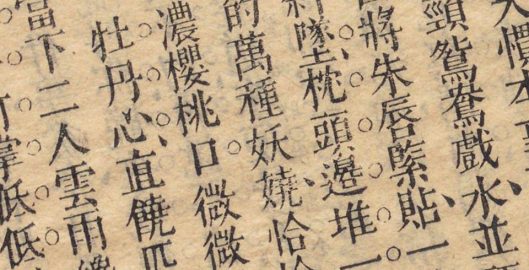 慣
頸鴛鴦戲水、並
將朱唇緊貼、一
墜、枕頭邊堆一
的萬種妖嬈、恰
濃。櫻桃口。微微
牡丹心、直饒匹
當下二人雲雨
低低